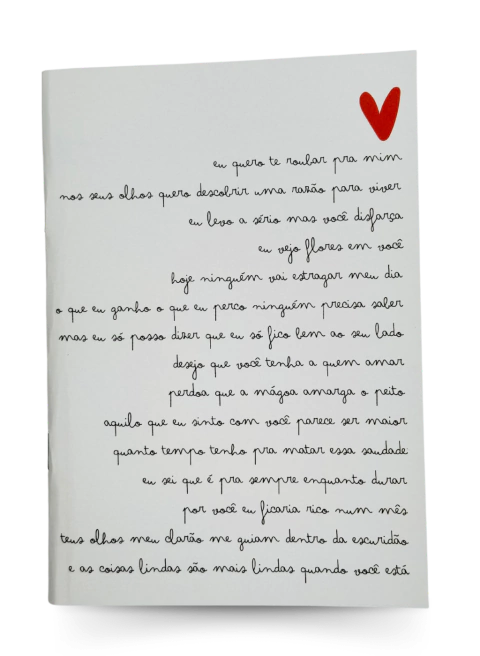 eu quero te roubar pra mim
nos seus olhos quero descobrir uma razão para viver
eu levo a sério mas você disfarça
eu vejo flores em você
hoje ninguém vai estragar meu dia
o que eu ganho o que eu perco ninguém precisa saber
mas eu só posso dizer que eu só fico bem ao seu lado
desejo que você tenha a quem amar
perdoa que a mágoa amarga o peito
aquilo que eu sinto com você parece ser maior
quanto tempo tenho pra matar essa saudade
eu sei que é pra sempre enquanto durar
por você eu ficaria rico num mês
teus olhos meu clarão me guiam dentro da escuridão
e as coisas lindas são mais lindas quando você está